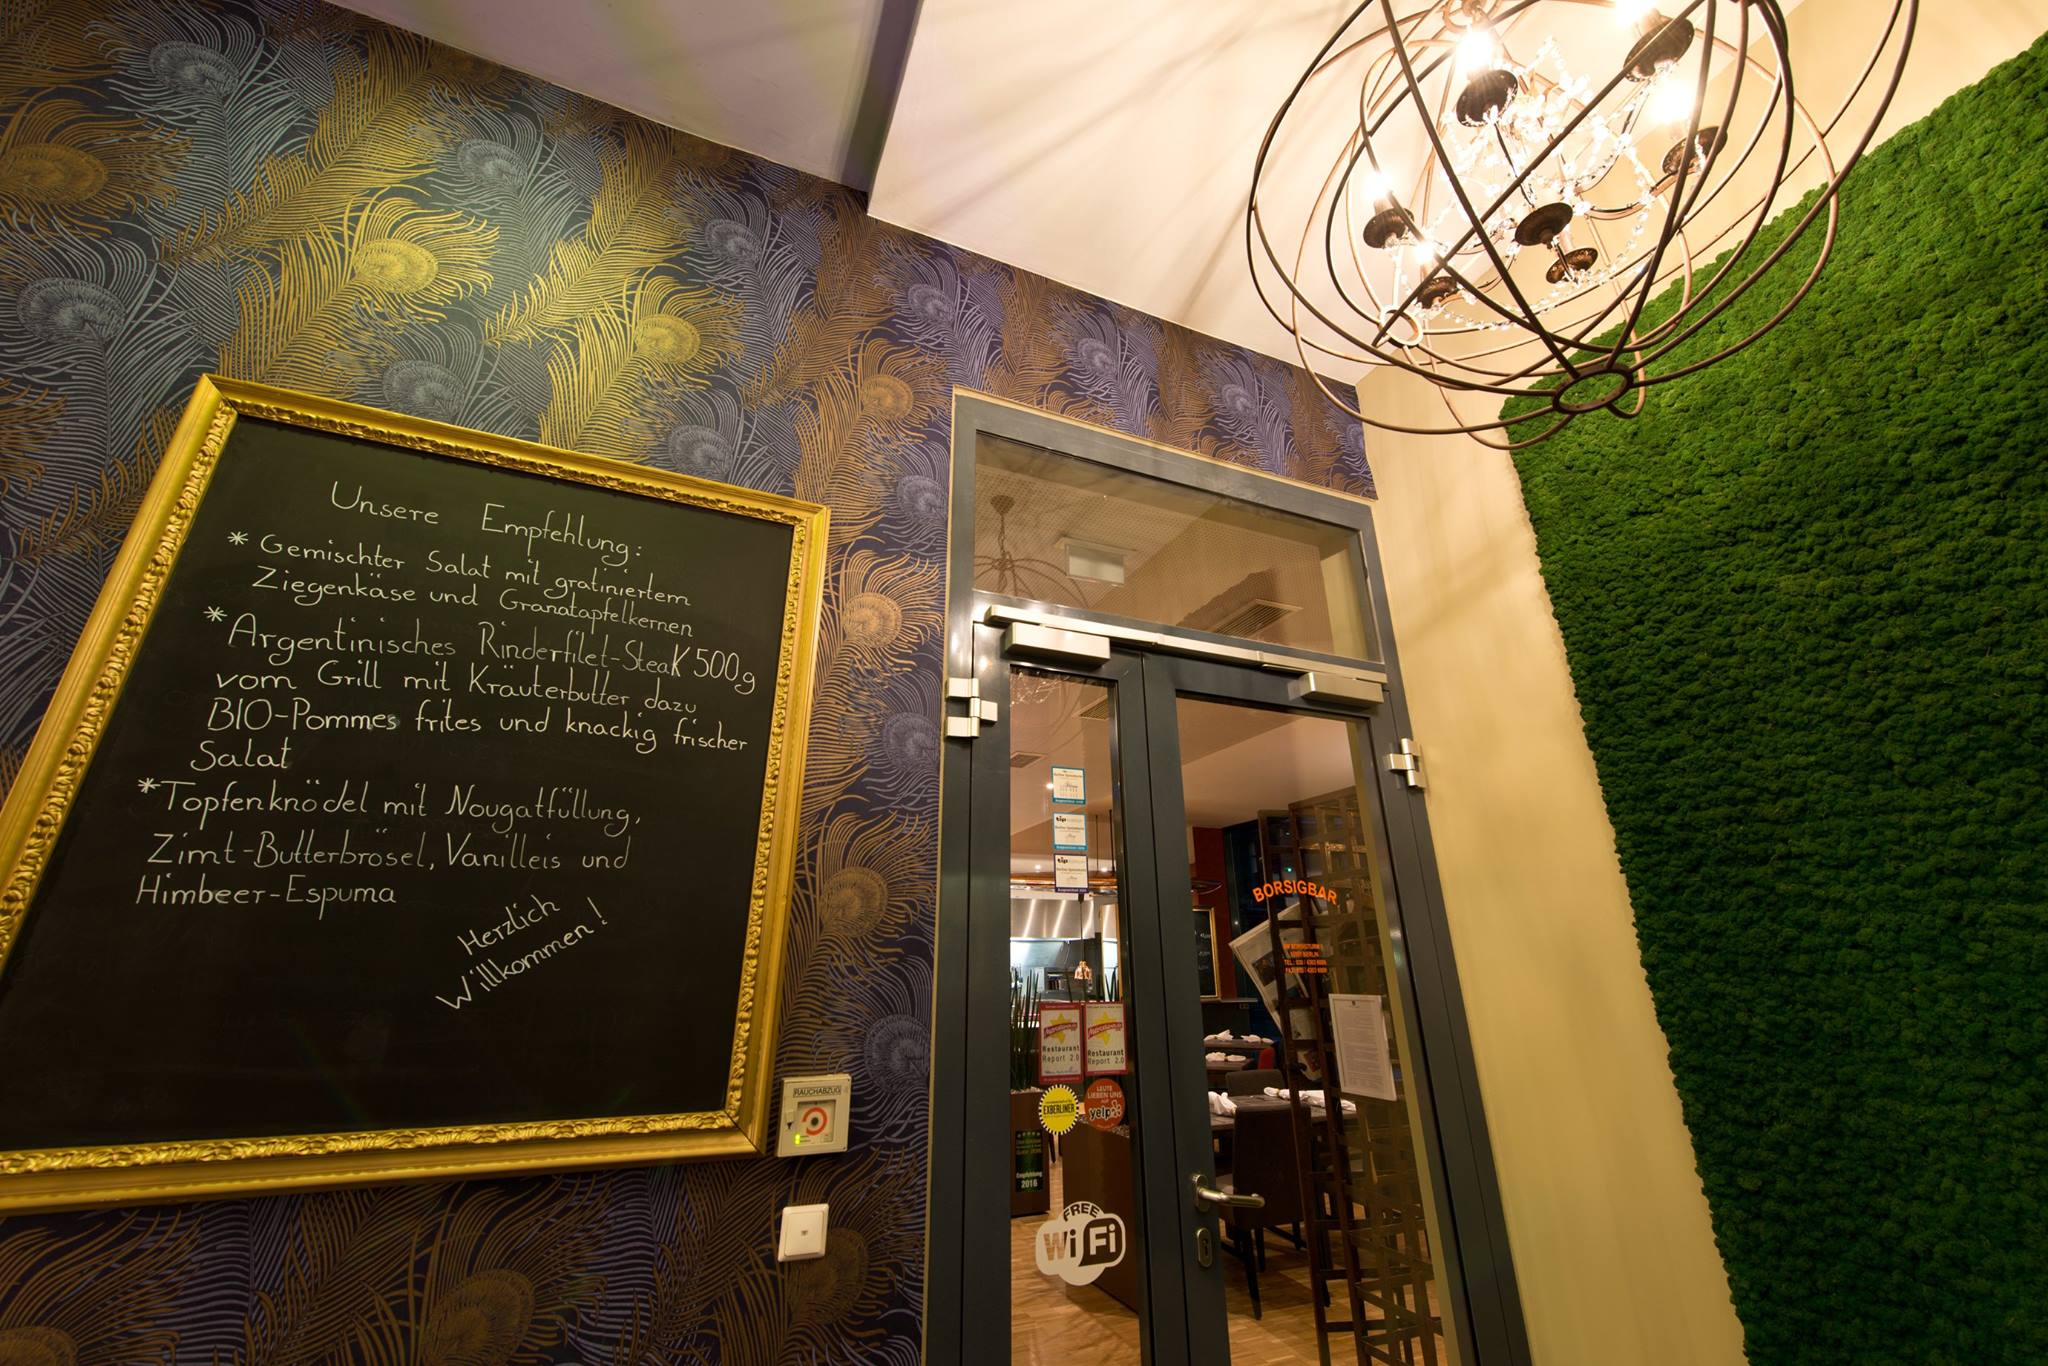 Unsere Empfehlung:
* Gemischter Salat mit gratiniertem
Ziegenkäse und Granatapfelkernen
* Argentinisches Rinderfilet-Steak 500g
vom Grill mit Kräuterbutter dazu
BIO-Pommes frites und knackig frischer
Salat
* Topfenknödel mit Nougatfüllung,
Zimt-Butterbrösel, Vanilleis und
Himbeer-Espuma
Herzlich
Willkommen!
RAUCHABZUG
tip
tip
BORSIGBAR
Restaurant
Report 2.0
Restaurant
Report 2.0
EXBERLINER
LEUTE
LIEBEN UNS
AUF
yelp
Empfehlung
2016
FREE
WiFi